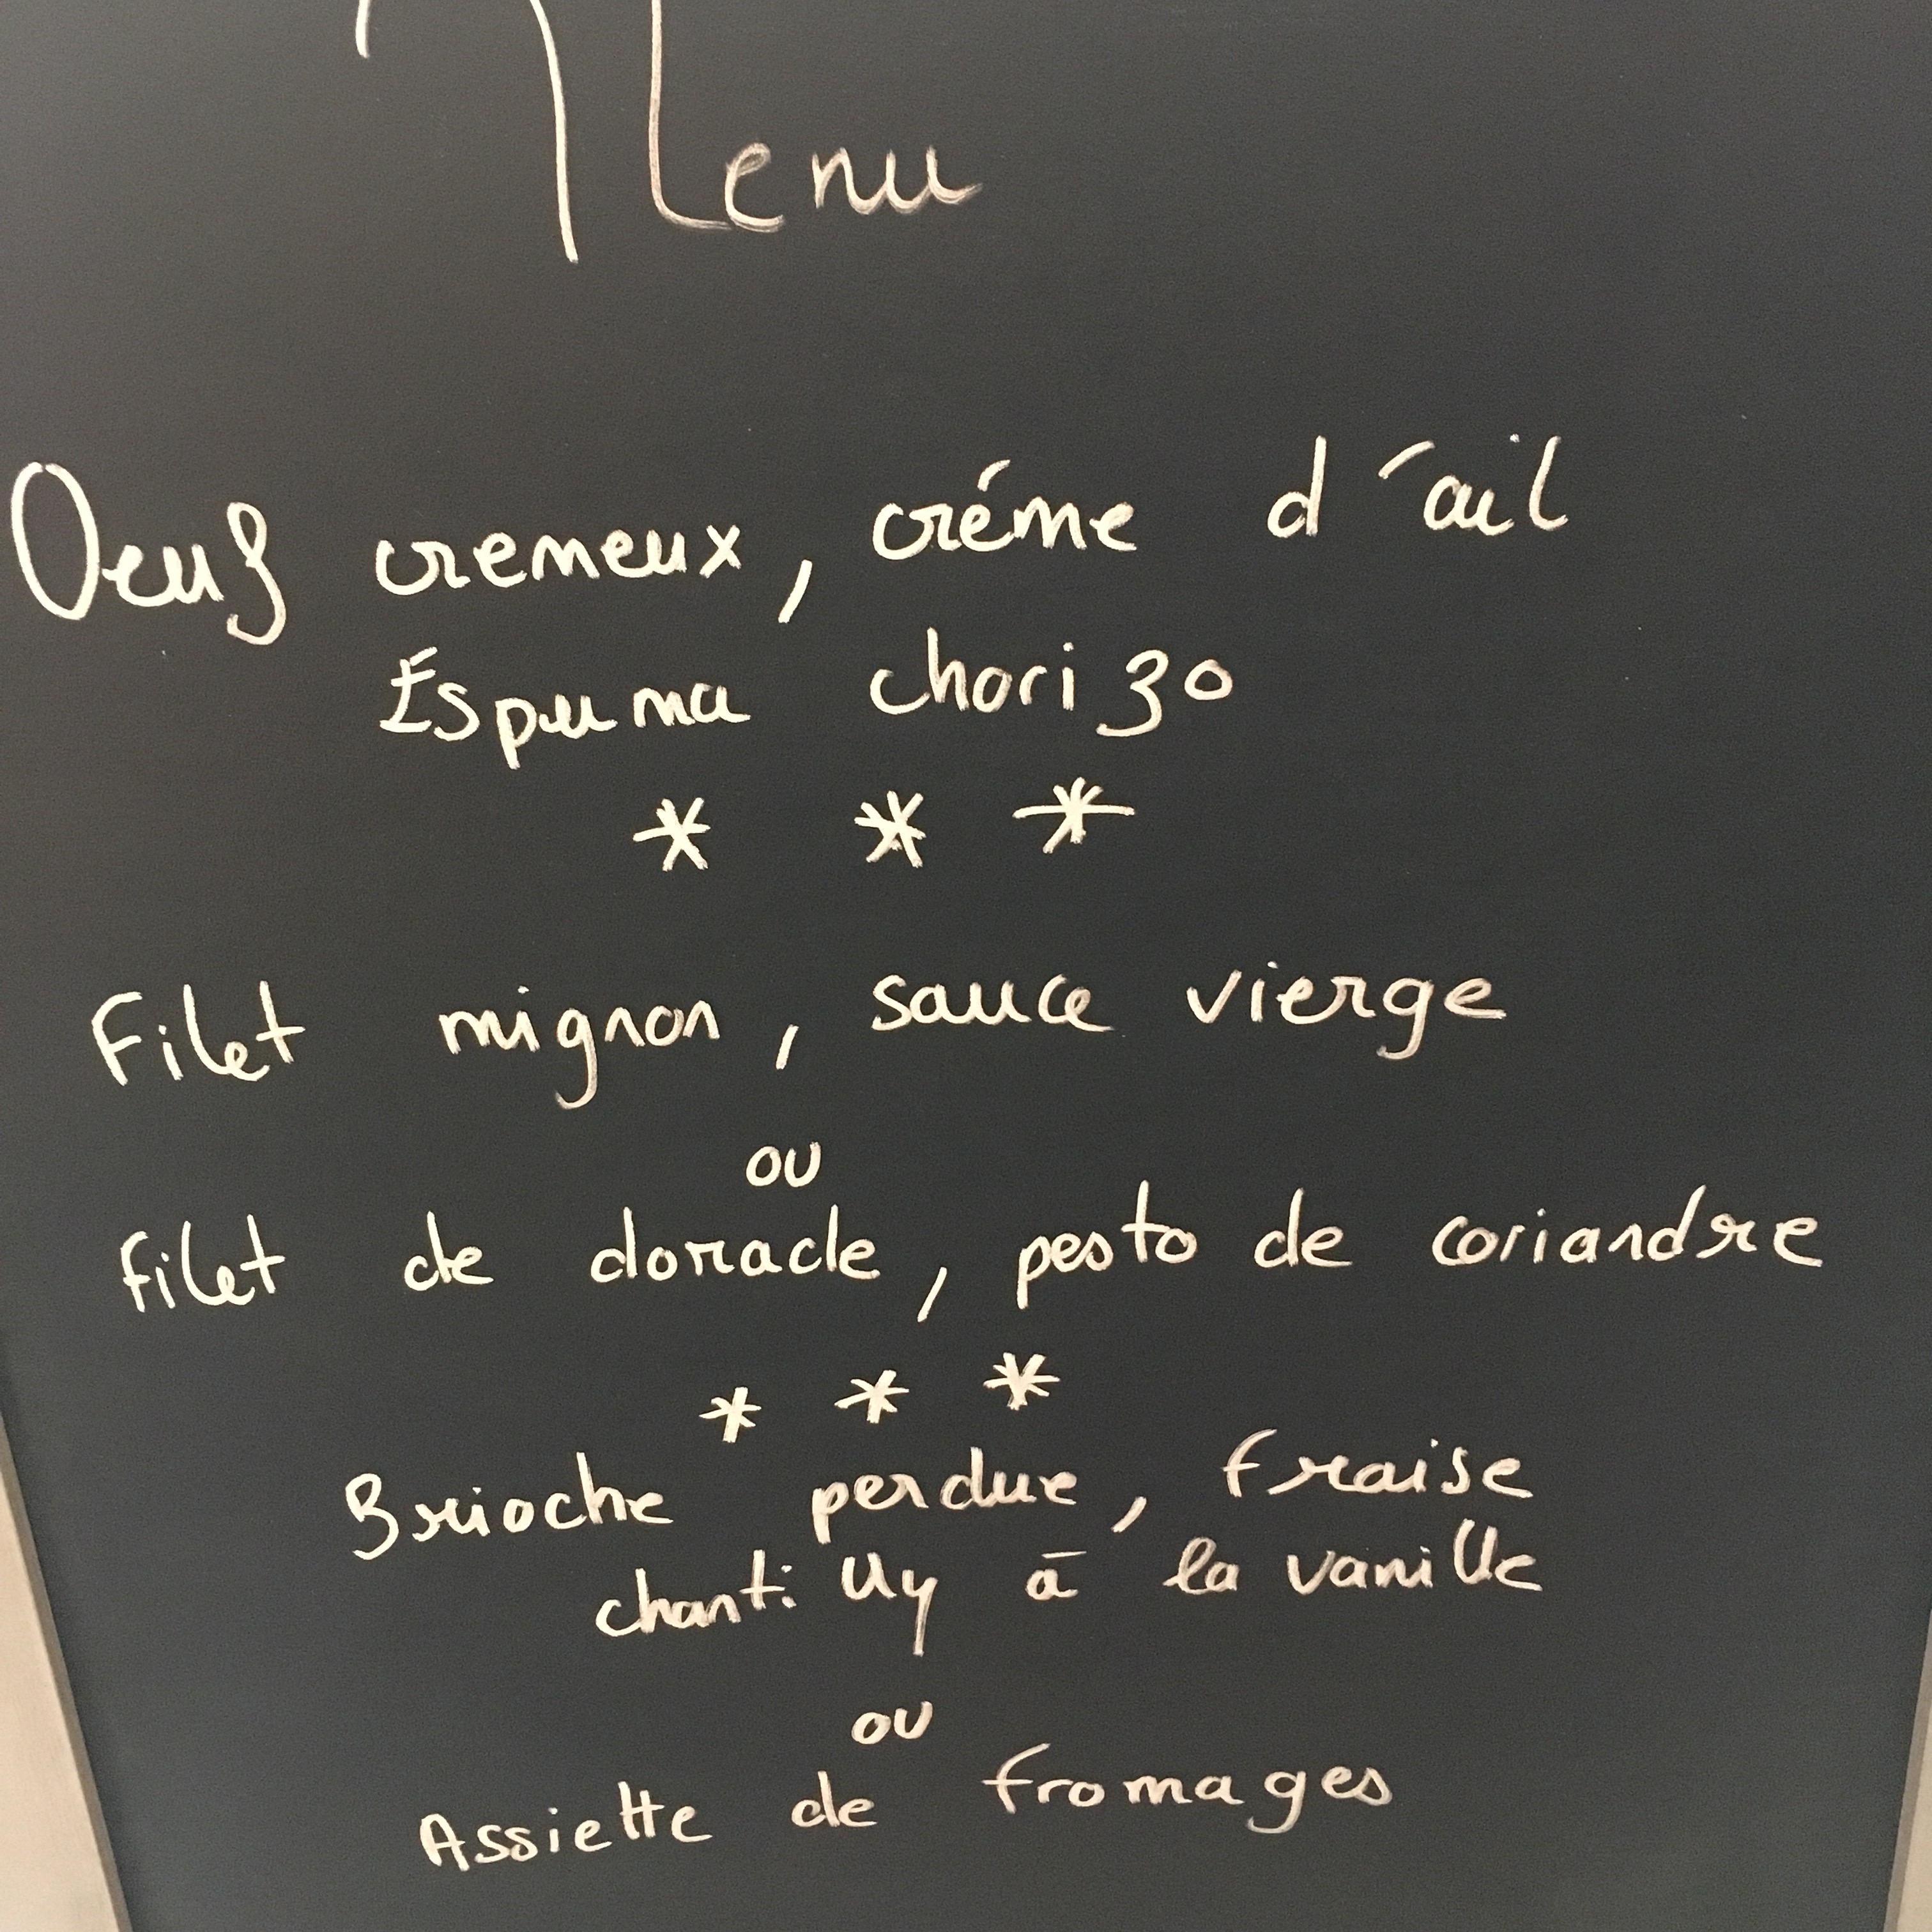 Menu
Oeuf cremeux, créme d'ail
Espuma chorizo
* * *
Filet mignon, sauce vierge
ou
Filet de dorade, pesto de coriandre
* * *
Brioche perdue, fraise
chantilly à la vanille
ou
Assiette de fromages